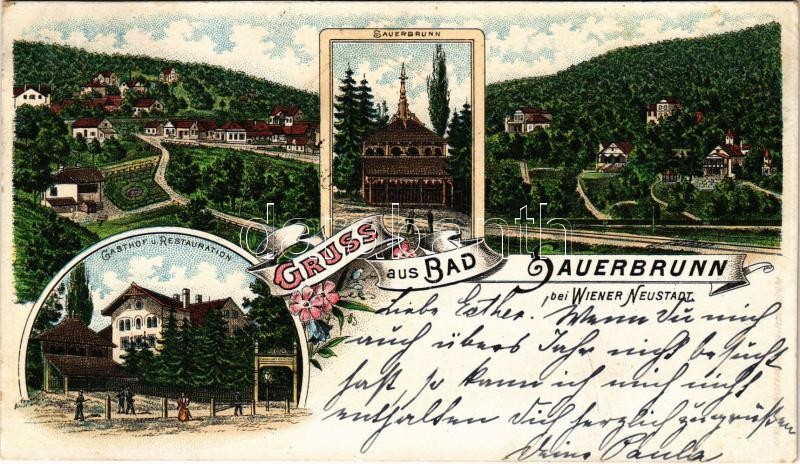 SAUERBRUNN
GASTHOF U. RESTAURATION
GRUSS
aus BAD
SAUERBRUNN
bei WIENER NEUSTADT
Liebe Esther. Wenn Du mich
auch übers Jahr nicht besucht
hast, so kann ich mich nicht
enthalten Dich herzlich zu grüßen
Deine Paula
darabanth